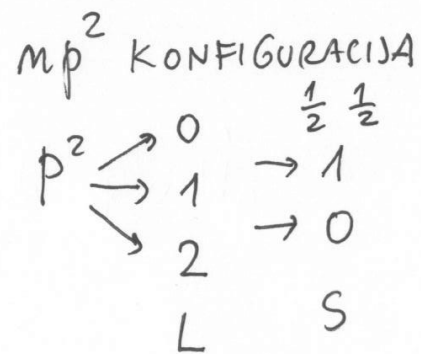 np² KONFIGURACIJA
1/2 1/2
p² → 0
→ 1 → 1
→ 2 → 0
L S